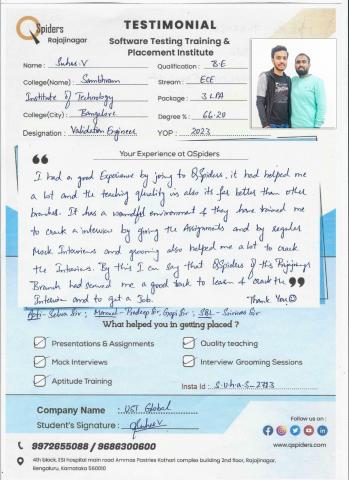 QSpiders
Rajajinagar
TESTIMONIAL
Software Testing Training &
Placement Institute
Name : Suhas.V
Qualification : B.E
College(Name) : Sambhram
Stream : ECE
Institute of Technology
Package : 3 LPA
College(City) : Bangalore
Degree % : 66.20
Designation : Validation Engineer
YOP : 2023
Your Experience at QSpiders
I had a good Experience by joing to QSpiders, it had helped me
a lot and the teaching quality is also its far better than other
branches. It has a wonderful environment & they have trained me
to crack a interview by giving the Assignments and by regular
Mock Interviews and grooming also helped me a lot to crack
the Interviews. By this I can say that QSpiders of this Rajajinagar
Branch had served me a good task to learn & crack the
Interview and to get a Job.
Thank You☺
Apti - Selva Sir ; Manual - Pradeep Sir, Gopi Sir ; SQL - Srinivas Sir
What helped you in getting placed ?
Presentations & Assignments
Quality teaching
Mock Interviews
Interview Grooming Sessions
Aptitude Training
Insta Id : S-u-h-a-S-2723
Company Name : UST Global
Student's Signature :
Follow us on :
9972655088 / 9686300600
www.qspiders.com
4th block, ESI hospital main road Ammas Pastries Kothari complex building 2nd floor, Rajajinagar,
Bengaluru, Karnataka 560010